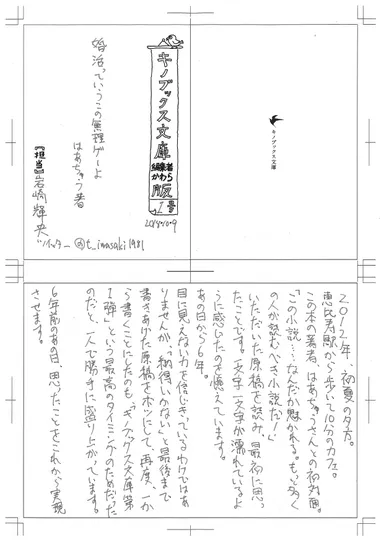 キノブックス文庫
編集者
かわら
版
1号
2018.10.9
婚活っていうこの無理ゲーよ
はあちゅう著
『担当』岩崎輝央
ツイッター @t_iwasaki1981
キノブックス文庫
2012年、初夏の夕方。
恵比寿駅から歩いて10分のカフェ。
この本の著者、はあちゅうさんとの初対面。
「この小説…なんだか魅かれる。もっと多く
の人が読むべき小説だ!」
いただいた原稿を読み、最初に思っ
たことです。一文字一文字が濡れているよ
うに感じたのを憶えています。
あの日から6年。
目に見えない力を信じきっているわけではあ
りませんが、「納得いかない」と最後まで
書きあげた原稿をボツにして、再度、一か
ら書くことにしたのも、「キノブックス文庫第
1弾」という最高のタイミングのためだった
のだと、一人で勝手に盛り上がっています。
6年前のあの日、思ったことをこれから実現
させます。